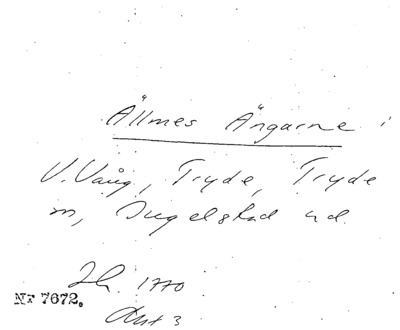 Ällmes Ängarne i
V. Vång, Tryde, Tryde
m, Ingelstad hd.
Lh. 1770
Nr 7672.
Akt 3